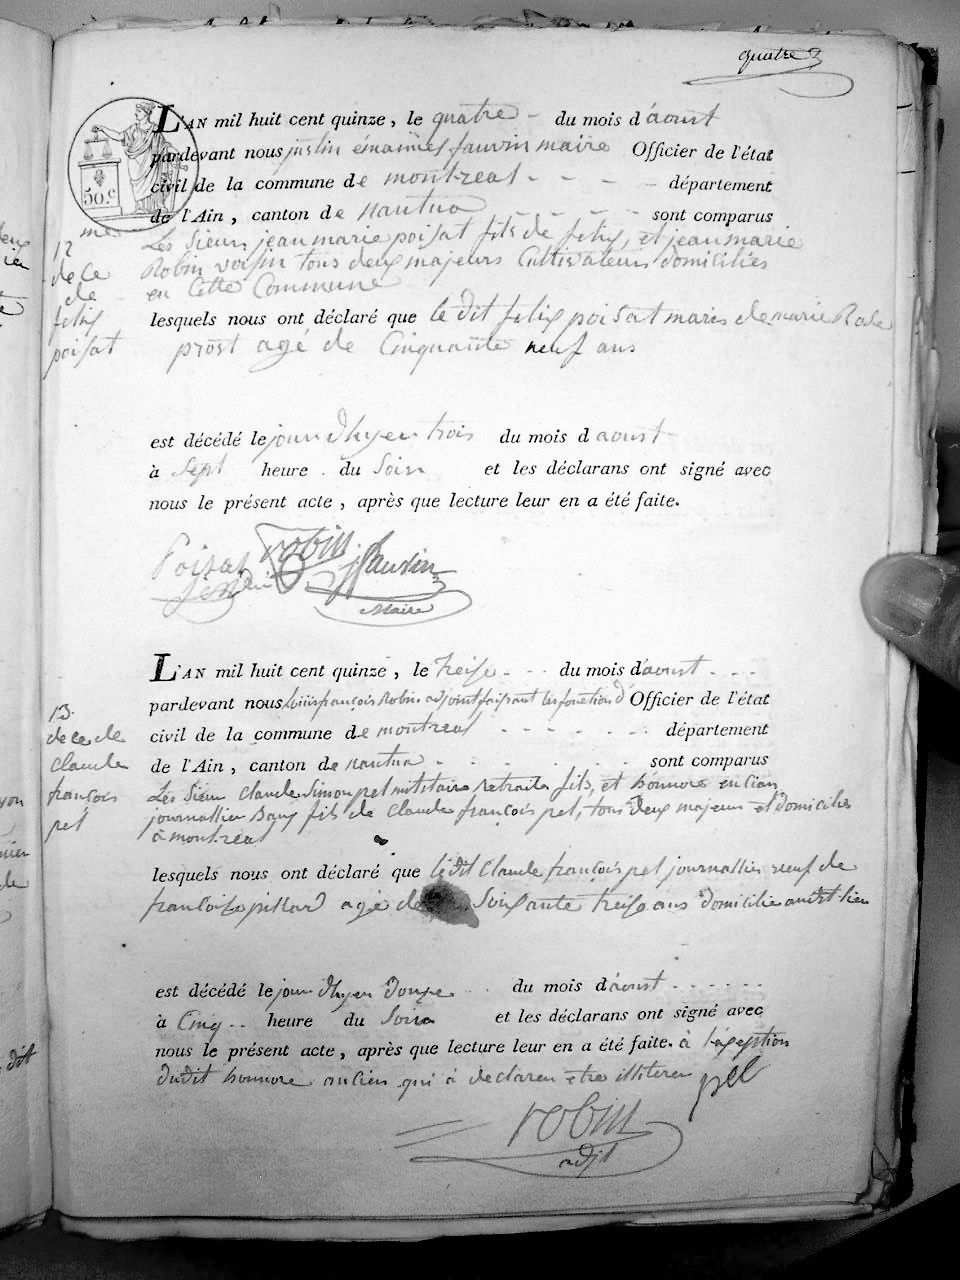 quatre
L'AN mil huit cent quinze, le quatre - du mois d'aoust
pardevant nous justin émannuel fauvin maire Officier de l'état
civil de la commune de montreal - - - - département
de l'Ain, canton de nantua - - - - sont comparus
Les Sieurs jean marie poisat fils de felix, et jean marie
Robin voisin tous deux majeurs Cultivateurs domiciliés
en Cette Commune
lesquels nous ont déclaré que le dit felix poisat maris de marie Rose
prost age de Cinquante neuf ans
est décédé le jour d'hyer trois du mois d aoust
à Sept heure du Soir et les déclarans ont signé avec
nous le présent acte, après que lecture leur en a été faite.
12
me
de ce
de
felix
poisat
50 c
Poizat robin fauvin
Maire
L'AN mil huit cent quinze, le treise - - - du mois d'aoust - - -
pardevant nous Louis françois Robin adjoint faisant les fonctions d' Officier de l'état
civil de la commune de montreal - - - - - - département
de l'Ain, canton de nantua - - - - - - sont comparus
Les Sieur claude Simon pet militaire retraité fils, et honnore encian
journallier Baux fils de claude françois pet, tous deux majeur et domicilié
à montréal
lesquels nous ont déclaré que le dit Claude françois pet journallier veuf de
francoise pillard age de Soixante treise ans domicilié audit lieu
est décédé le jour d'hyer douze - - du mois d'aoust - - - - - -
à Cinq - - heure du Soire et les déclarans ont signé avec
nous le présent acte, après que lecture leur en a été faite. à l'exeption
dudit honnore ancien qui à declaren etre illiteren
pet
13.
decé de
claude
françois
pet
robin
adjt